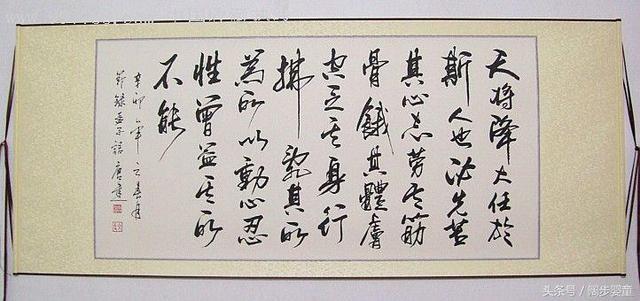 天將降大任於
斯人也必先苦
其心志勞其筋
骨餓其體膚
空乏其身行
拂亂其所
為所以動心忍
性曾益其所
不能
辛卯年之春月
節錄孟子語唐建
头条号 / 阔步婴童